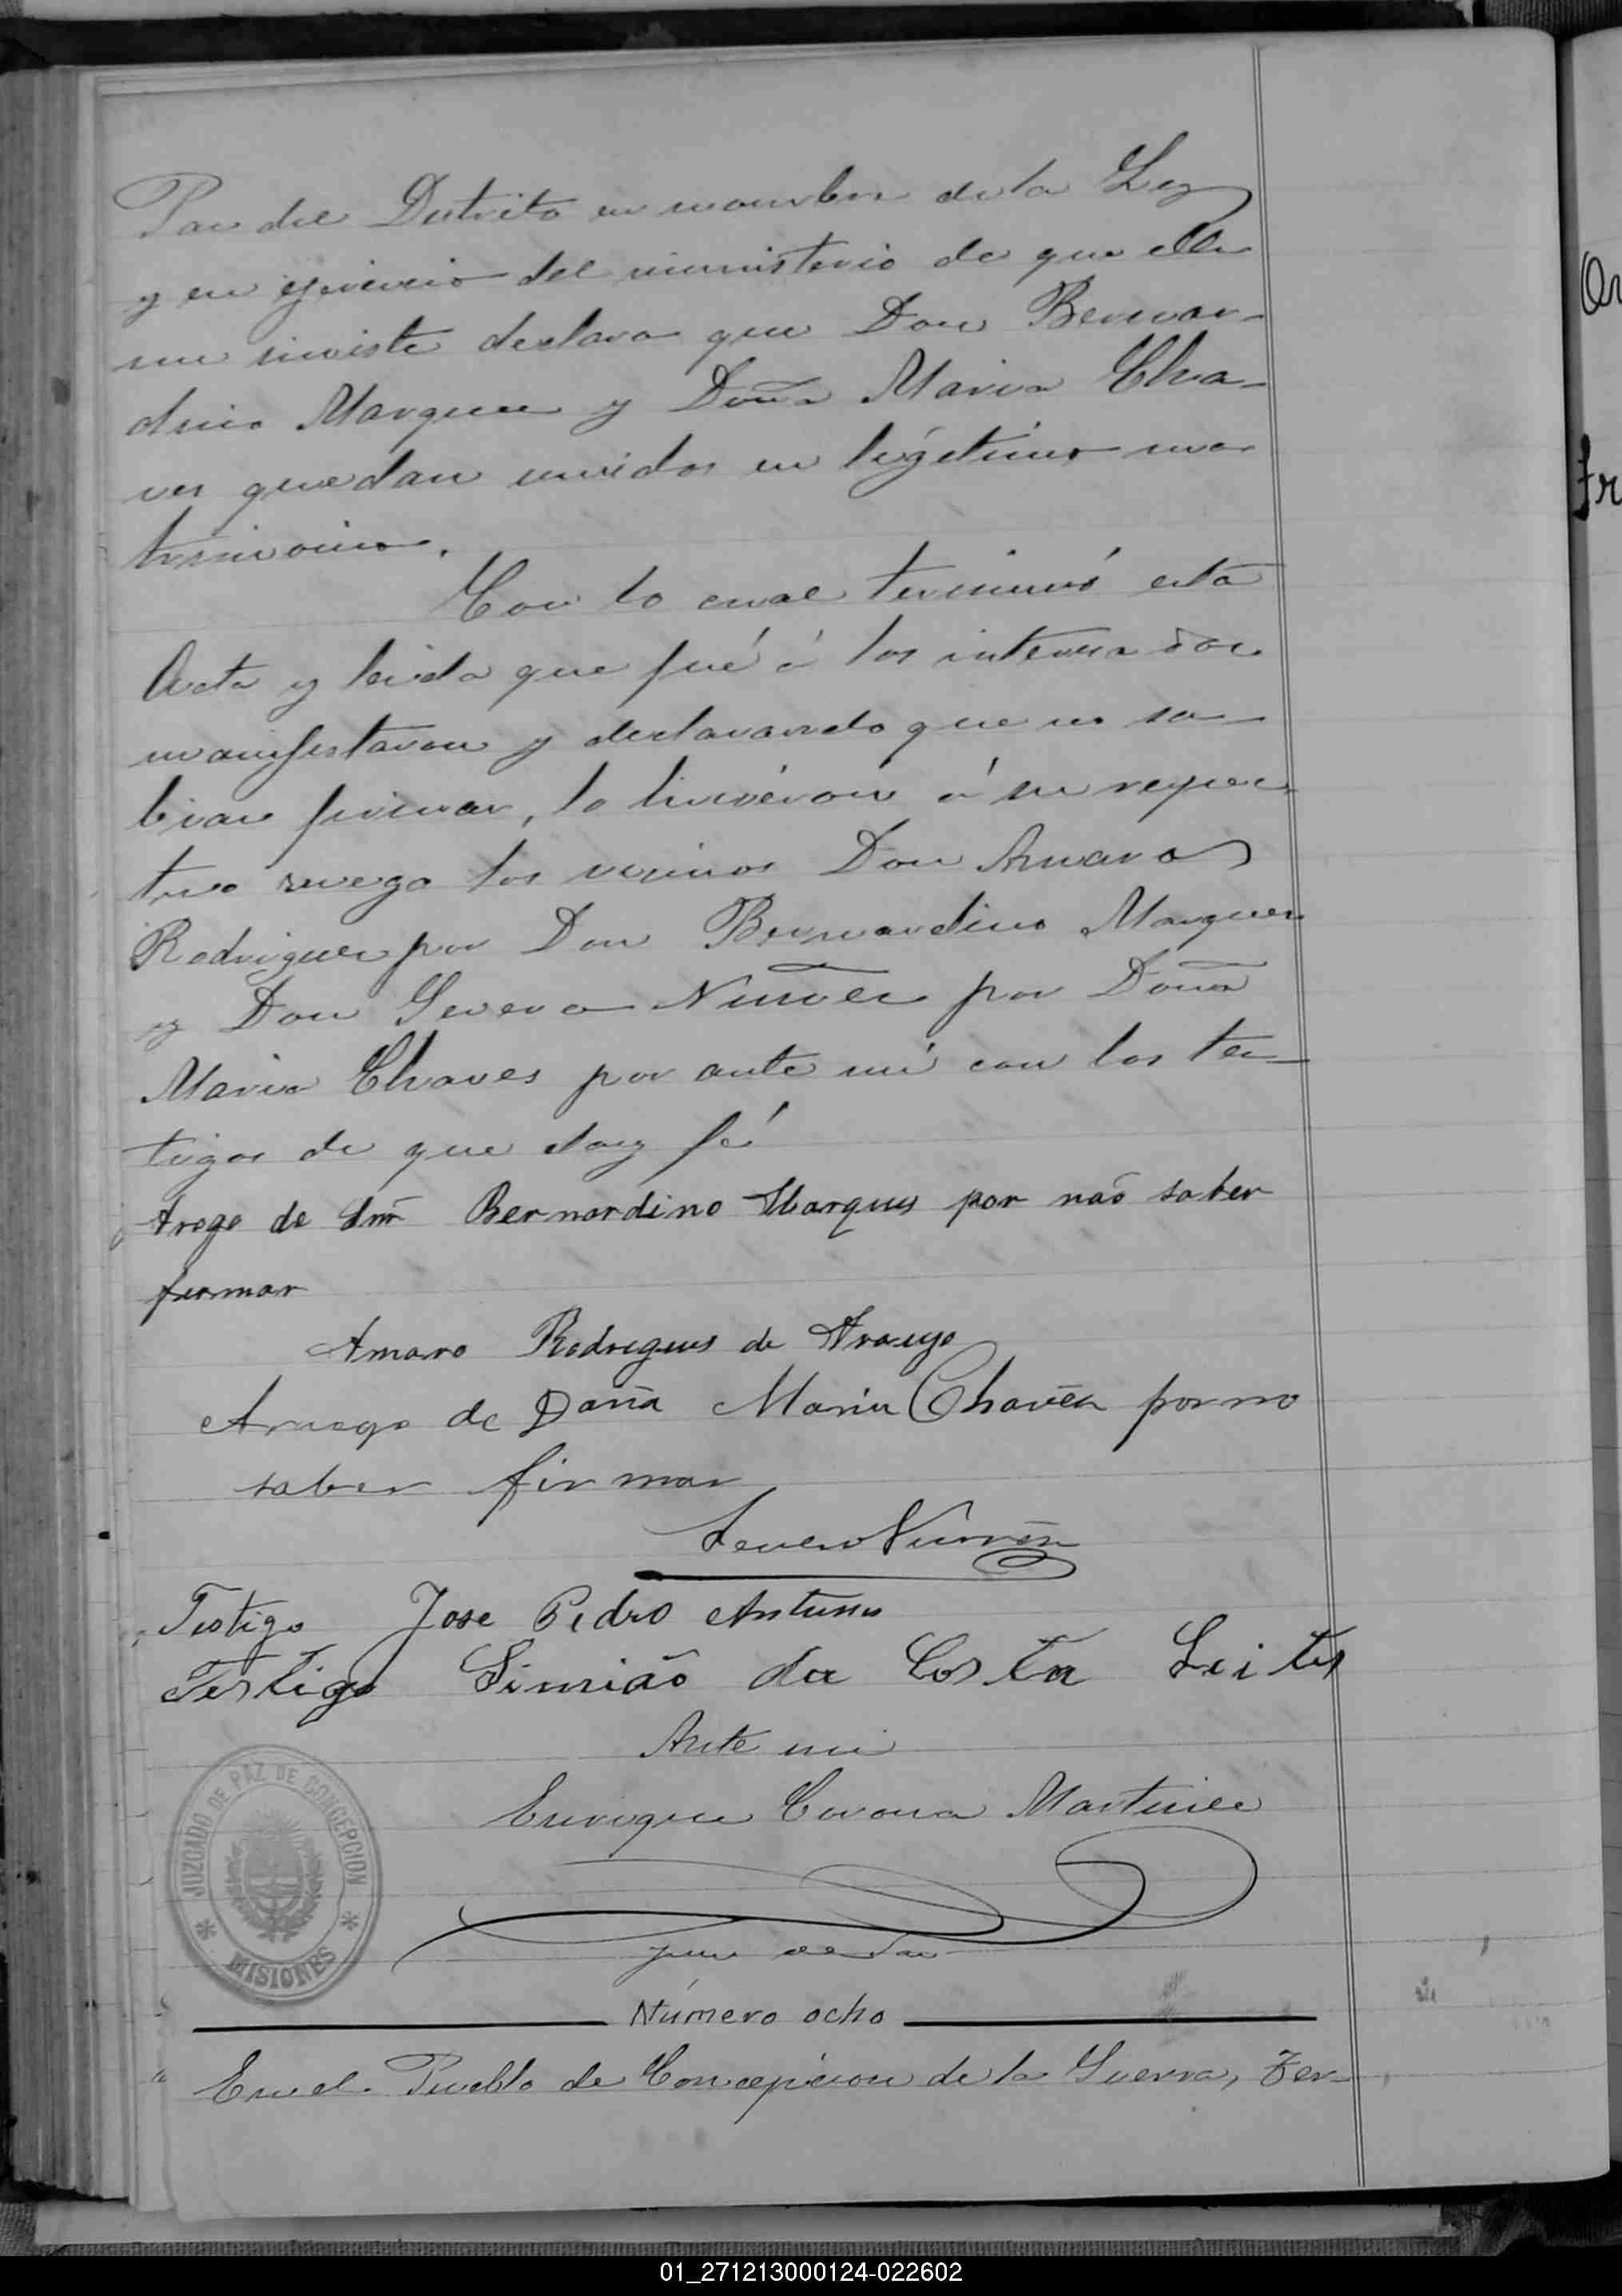 Paz del Distrito en nombre de la Ley
y en ejercicio del ministerio de que ella
me inviste declaro que Don Bernar-
dino Marquez y Doña Maria Cha-
ves quedan unidos en legítimo ma
trimonio.
Con lo cual terminó esta
Acta y leida que fué á los interesados
manifestaron y declarando que no sa-
bian firmar, lo hiciéron á su respec
tivo ruego los vecinos Don Amaro
Rodriguez por Don Bernardino Marquez
y Don Severo Nuñez por Doña
Maria Chaves por ante mi con los tes-
tigos de que doy fé
Arogo de Snr Bernardino Marques por naõ saber
firmar
Amaro Rodrigues de Araujo
Aruego de Doña Maria Chavez por no
saber firmar
Severo Nuñez
Testigo Jose Pedro Antunes
Testigo Simião da Costa Leites
Ante mi
Enrique Corona Martinez
Juez de Paz
JUZGADO DE PAZ DE CONCEPCION
* MISIONES *
Número ocho
En el Pueblo de Concepcion de la Sierra, Ter-
01_271213000124-022602